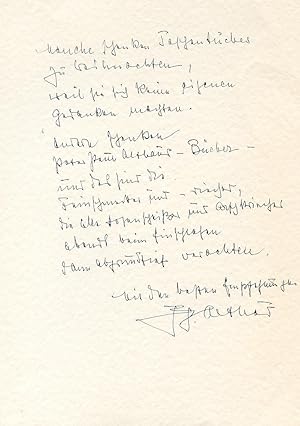 Manche schenken Taschentücher
zu Weihnachten,
weil sie sich keine eigenen
Gedanken machten.
Andere schenken
Peter Paul Althaus-Bücher -
und das sind die
Feinschmecker und -riecher,
die alle Hosenscheißer und
abends beim Einschlafen
dann abgrundtief verachten.
Mit den besten Empfehlungen
Althaus